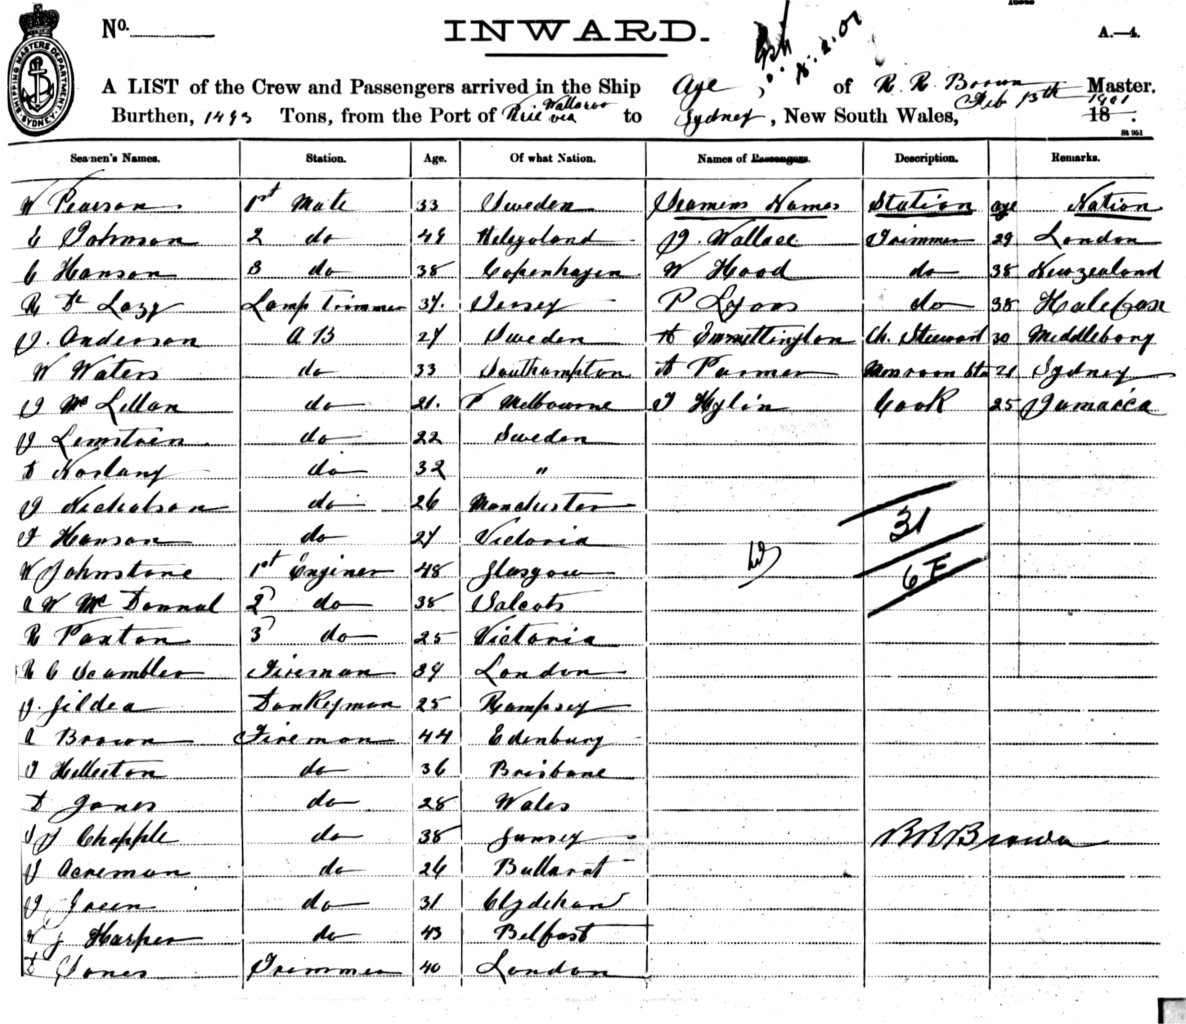 No. INWARD. A.—4.
SHIPPING MASTERS DEPARTMENT SYDNEY
A LIST of the Crew and Passengers arrived in the Ship Age, of R. R. Brown Master.
Burthen, 1493 Tons, from the Port of Pirie via Wallaroo to Sydney, New South Wales, Feb 13th 1901 18 .
St 951
Seamen's Names. Station. Age. Of what Nation. Names of Passengers. Description. Remarks.
W Pearson 1st Mate 33 Sweden Seamens Names Station age Nation
C Johnson 2 do 49 Helegoland J. Wallace Trimmer 29 London
C Hanson 3 do 38 Copenhagen W Hood do 38 Newzealand
R De Lazy Lamp Trimmer 37. Jersey P Lyons do 38
J. Anderson A B 27 Sweden H Emmettington Ch. Steward 30 Middleborg
W Waters do 33 Southampton A Parmer Mesroom Std 21 Sydney
J Mc Lellan do 21. P Melbourne J Hylin Cook 25 Jamaica
J do 22 Sweden
do 32 "
J Nicholson do 26 Manchester
F Hanson do 27 Victoria 31
W Johnstone 1st Enginer 48 Glasgow 6 F
A W Mc Donnal 2 do 38 Salcots
R Paxton 3 do 25 Victoria
R C Scambler Fireman 39 London
J. Gildea Donkeyman 25 Rampsey
A Brown Fireman 44 Edenburg
do 36 Brisbane
D Jones do 28 Wales
J J Chapple do 38 Jursey R R Brown
J Acreman do 26 Ballarat
J Green do 31
W J Harper do 43 Belfast
D Jones Trimmer 40 London